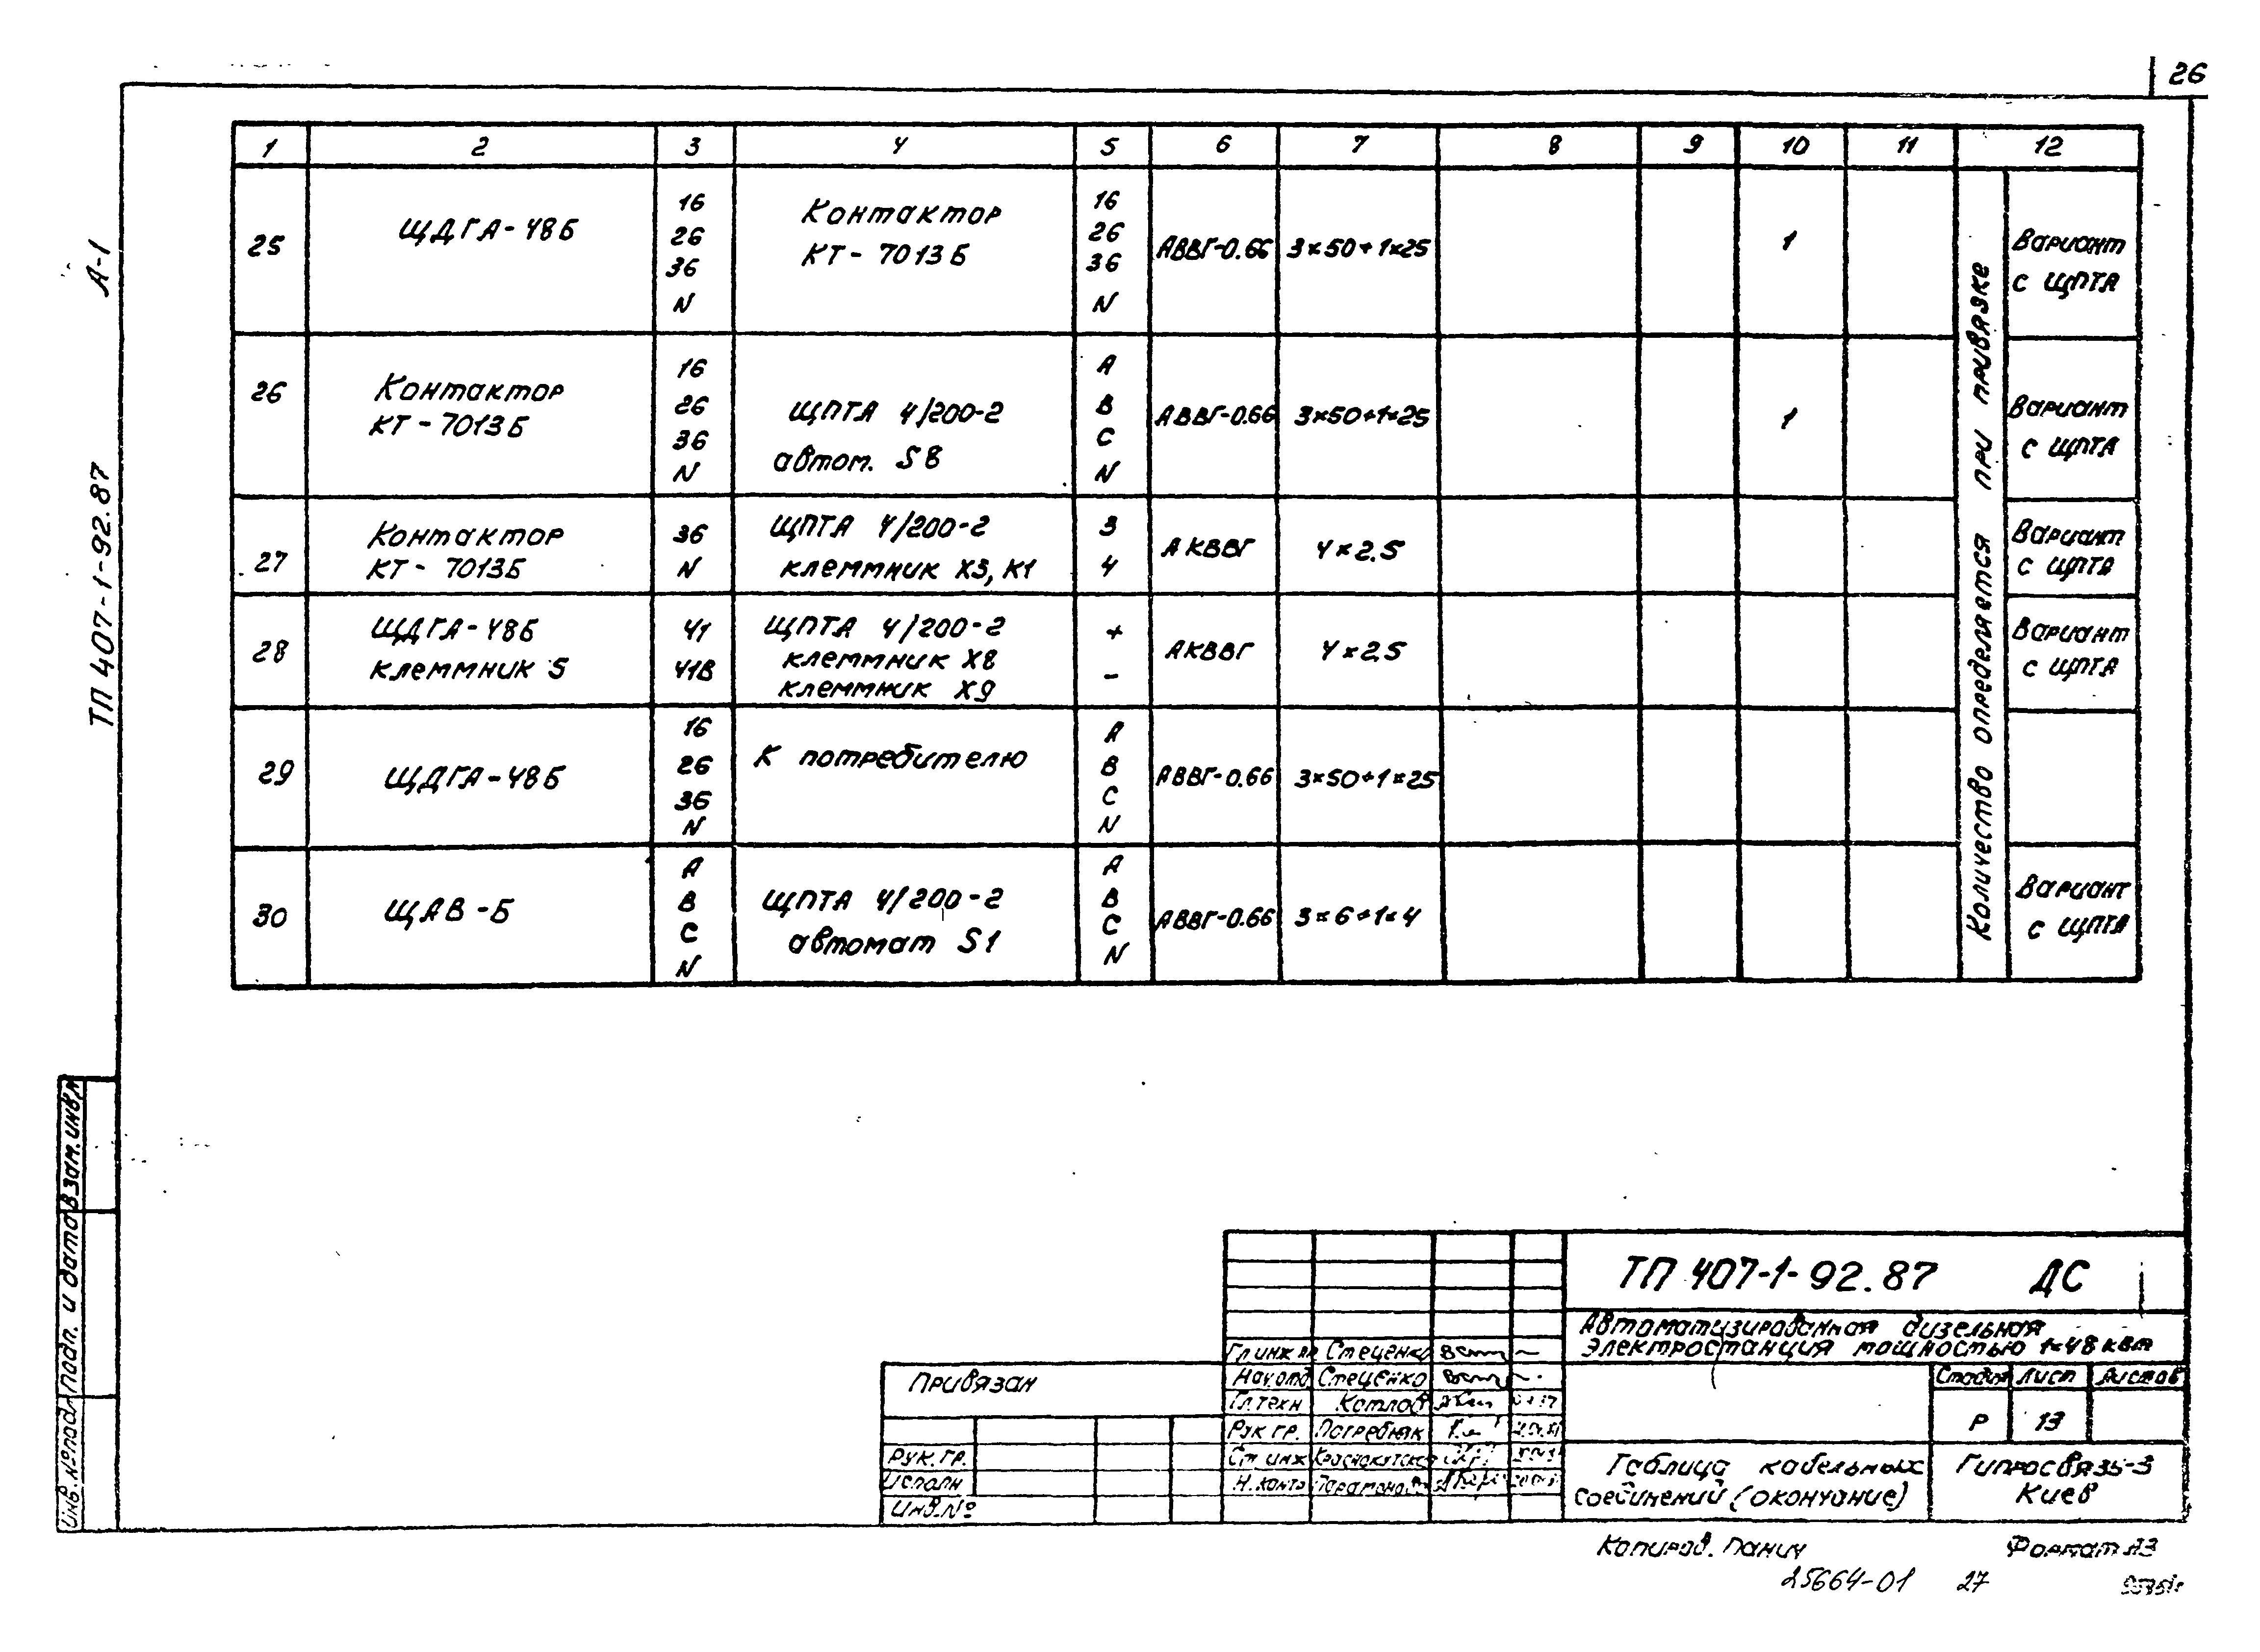 26
А-1
ТП 407-1-92.87
1 2 3 4 5 6 7 8 9 10 11 12
25 ЩДГА-48Б 16 26 36 N Контактор КТ-7013Б 16 26 36 N АВВГ-0.66 3×50+1×25 1 Вариант с ЩПТА
26 Контактор КТ-7013Б 16 26 36 N ЩПТА 4/200-2 автом. S8 А В С N АВВГ-0.66 3×50+1×25 1 Вариант с ЩПТА
27 Контактор КТ-7013Б 36 N ЩПТА 4/200-2 клеммник X3, К1 3 4 АКВВГ 4×2.5 Вариант с ЩПТА
28 ЩДГА-48Б клеммник 5 41 41В ЩПТА 4/200-2 клеммник X8 клеммник X9 + - АКВВГ 4×2.5 Вариант с ЩПТА
29 ЩДГА-48Б 16 26 36 N К потребителю А В С N АВВГ-0.66 3×50+1×25
30 ЩАВ-Б А В С N ЩПТА 4/200-2 автомат S1 А В С N АВВГ-0.66 3×6+1×4 Вариант с ЩПТА
Количество определяется при привязке
Взам.инв.№
Подп. и дата
Инв.№подл.
ТП 407-1-92.87 ДС
Автоматизированная дизельная
электростанция мощностью 1×48 кВт
Гл.инж.пр. Стеценко
Нач.отд. Стеценко
Гл.техн Котлов
Рук гр. Потребняк
Ст.инж
Н.контр
Привязан
Рук.гр.
Исполн
Инв.№
Стадия Лист Листов
Р 13
Таблица кабельных
соединений (окончание)
Гипросвязь-3
Киев
Копиров. Панич
Формат А3
25664-01 27